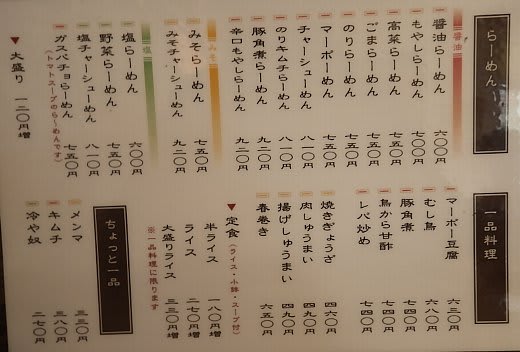 らーめん
醤油
醤油らーめん 六〇〇円
もやしらーめん 七〇〇円
高菜らーめん 七五〇円
ごまらーめん 七五〇円
のりらーめん 七五〇円
マーボーめん 七五〇円
チャーシューめん 八一〇円
のりキムチらーめん 八一〇円
豚角煮らーめん 九二〇円
辛口もやしらーめん 九二〇円
みそ
みそらーめん 七五〇円
みそチャーシューめん 九二〇円
塩
塩らーめん 六〇〇円
野菜らーめん 七五〇円
塩チャーシューめん 八一〇円
ガスパチョらーめん 七五〇円
(トマトスープのらーめんです)
▼大盛り 一二〇円増
一品料理
マーボー豆腐 六三〇円
むし鳥 六八〇円
豚角煮 七四〇円
鳥から甘酢 七四〇円
レバ炒め 七四〇円
焼きぎょうざ 四六〇円
肉しゅうまい 四九〇円
揚げしゅうまい 四九〇円
春巻き 六五〇円
▼定食(ライス・小鉢・スープ付)
半ライス 一八〇円増
ライス 二七〇円増
大盛りライス 三三〇円増
※一品料理に限ります
ちょっと一品
メンマ 三三〇円
キムチ 三八〇円
冷や奴 二七〇円